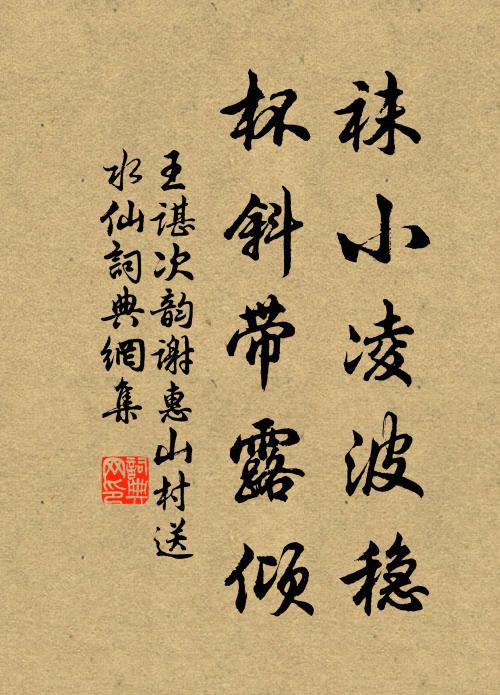 袜小凌波稳
杯斜带露倾
王谌次韵谢惠山村送
水仙詞典網集
詞典
网印